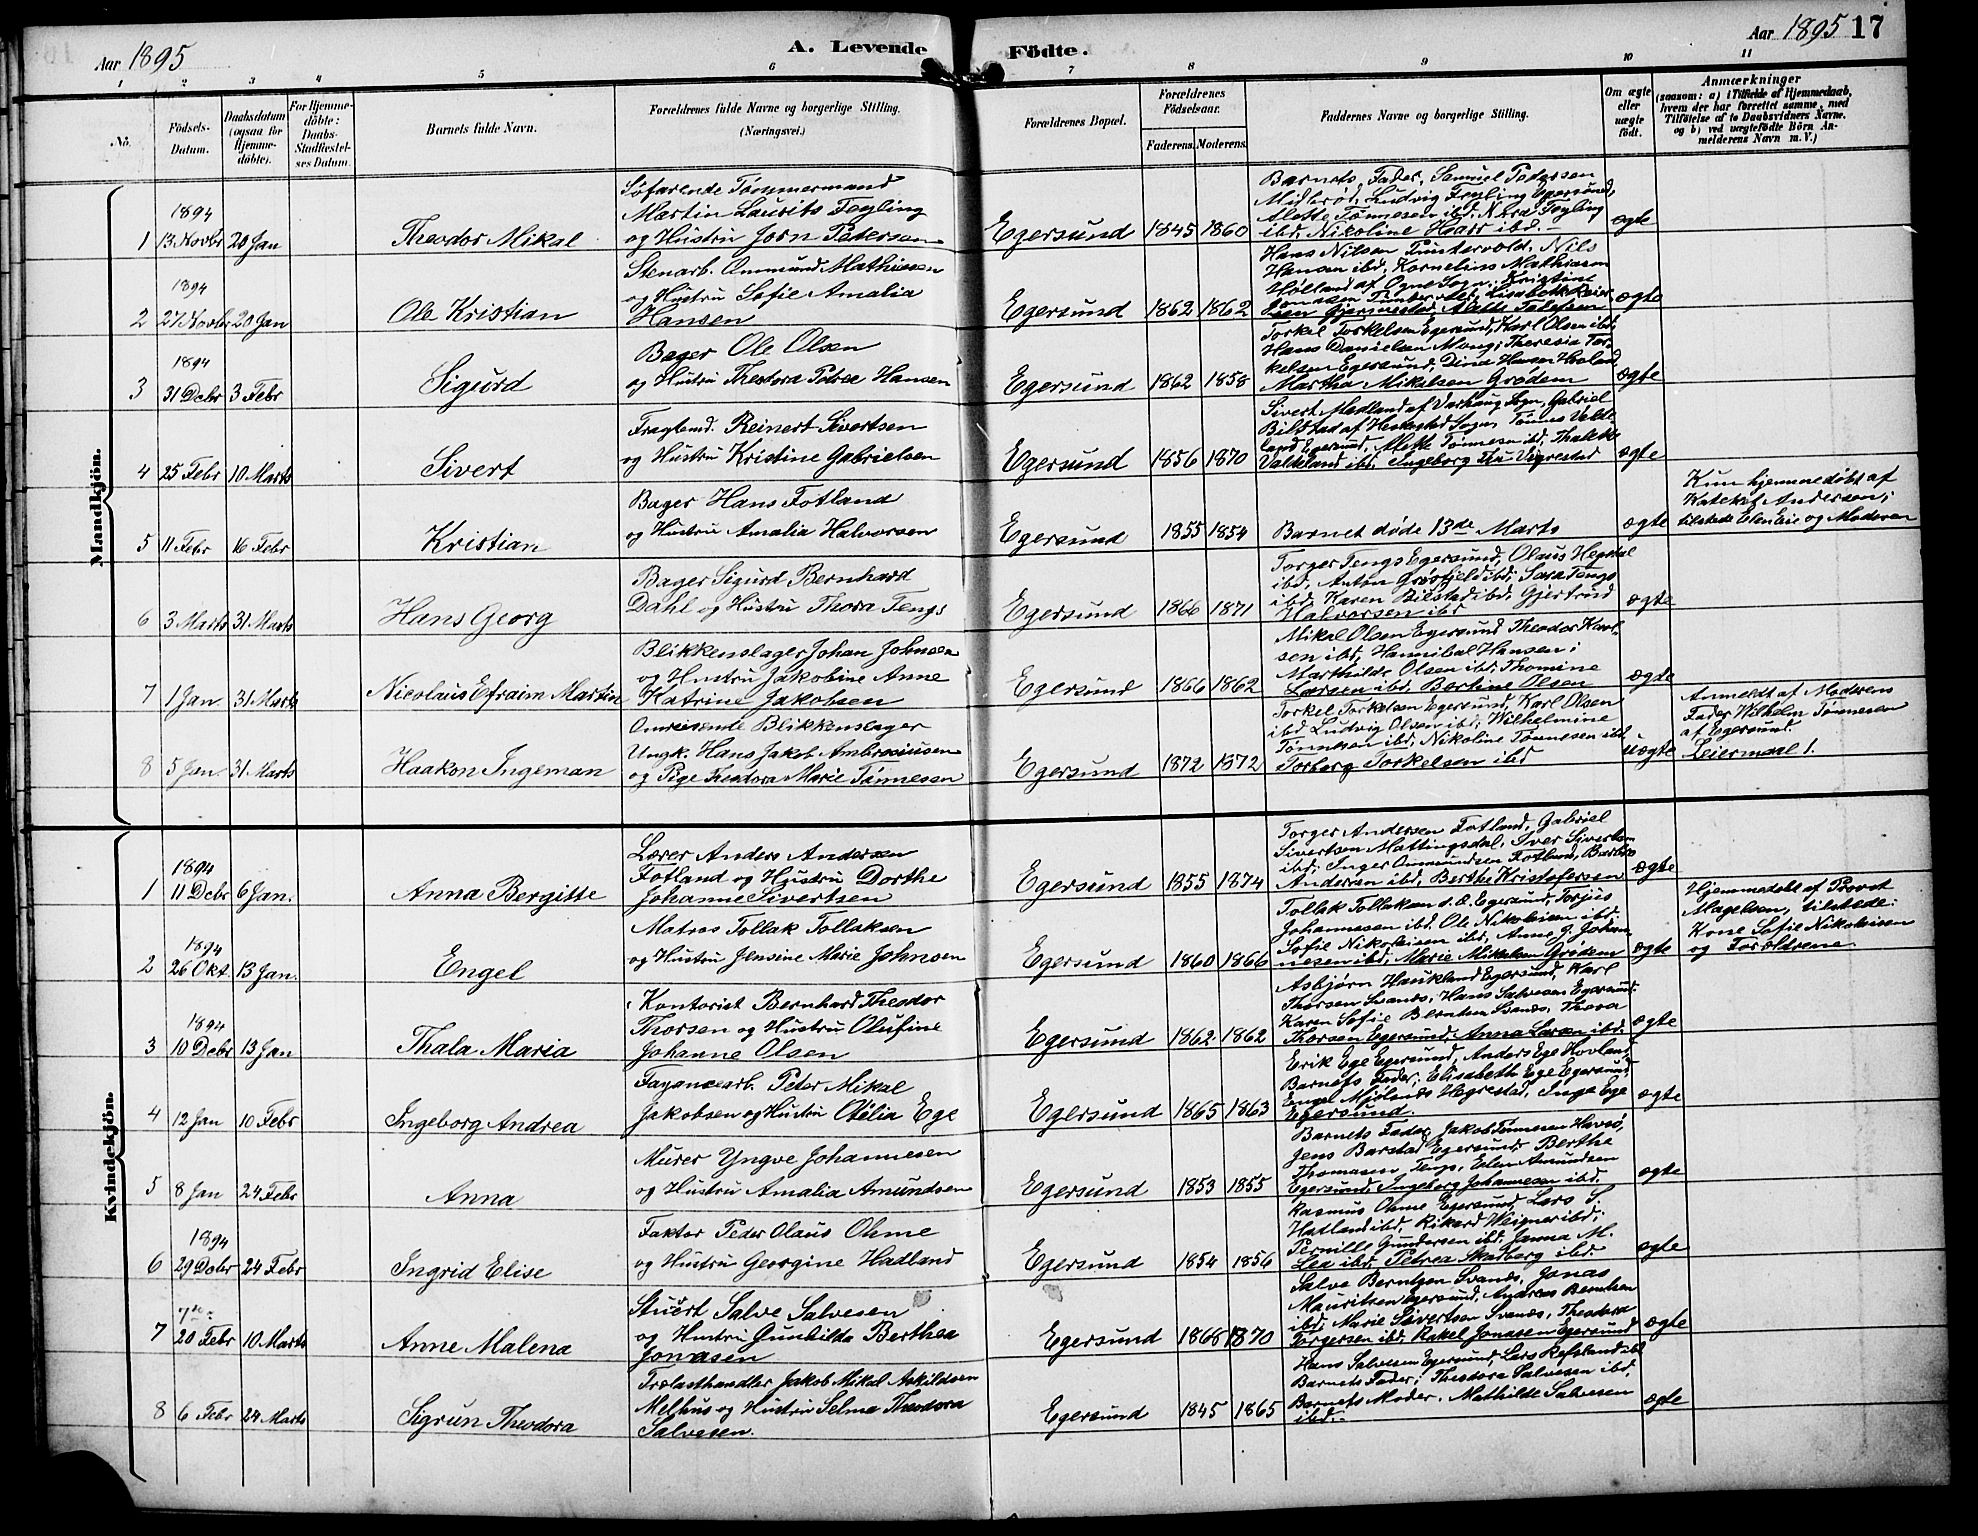 Aar 1895
A. Levende Födte.
Aar 1895 17
1 2 3 4 5 6 7 8 9 10 11
No.
Födsels-
Datum.
Daabsdatum
(ogsaa for
Hjemme-
döbte).
For Hjemme-
döbte:
Daabs-
Stadfæstel-
ses Datum.
Barnets fulde Navn.
Forældrenes fulde Navne og borgerlige Stilling.
(Næringsvei.)
Forældrenes Bopæl.
Forældrenes
Födselsaar.
Faderens. Moderens.
Faddernes Navne og borgerlige Stilling.
Om ægte
eller
uægte
født.
Anmærkninger
(saasom: a) i Tilfælde af Hjemmedaab,
hvem der har forrettet samme, med
Tilföielse af to Daabsvidners Navne,
og b) ved uægtefödte Börn An-
melderens Navn m. V.)
Mandkjön.
1894
1 13 Novbr 20 Jan
Theodor Mikal
Søfarende Tømmermand
Martin Laurits Fogling
og Hustru Jørn Petersen
Egersund 1845 1860
Barnets Fader, Samuel
Midbrød, Ludvig Fogling Egersund,
Alette Tønnesen ibd,
ibd, Nikoline Haar ibd.
ægte
1894
2 27 Novbr 20 Jan
Ole Kristian
Stenarb. Ommund Mathiesen
og Hustru Sofie Amalia
Hansen
Egersund 1862 1862
Hans Nilsen Puntervold, Nils
Hansen ibd, Kornelius Mathiasen
Holland af Ogne Sogn, Kristine
Jonasen
ægte
1894
3 31 Debr 3 Febr
Sigurd
Bager Ole Olsen
og Hustru Theodora Petrea Hansen
Egersund 1862 1858
Torkel Torkelsen Egersund, Karl Olsen ibd,
Hans Danielsen Mong, Theresia Tor-
kelsen Egersund, Dina Hansen
Martha Mikelsen Grødem
ægte
4 25 Febr 10 Marts
Sivert
Fragtemd. Reinert Sivertsen
og Hustru Kristine Gabrielsen
Egersund 1856 1870
Sivert Medland af Varhaug Sogn, Gabriel
Bilstad af Heskestad Sogn, Tønnes
land Egersund, Mette Tønnesen ibd,
ibd, Ingeborg Vigrestad
ægte
5 11 Febr 16 Febr
Kristian
Bager Hans Fotland
og Hustru Amalia Halvorsen
Egersund 1855 1854
Barnet døde 13de Marts
ægte
Kun hjemmedøbt af
Kateket Andersen;
tilstede Elen Eie og Moderen
6 3 Marts 31 Marts
Hans Georg
Bager Sigurd Bernhard
Dahl og Hustru Thora Tengs
Egersund 1866 1871
Torger Tengs Egersund, Olaus Hegdal
ibd, Anton Grøsfjeld ibd, Sara Tengs
ibd, Karen Bilstad ibd, Gjertrud
Halvorsen ibd
ægte
7 1 Jan. 31 Marts
Nicolaus Efraim Martin
Blikkenslager Johan Johnsen
og Hustru Jakobine Anne
Katrine Jakobsen
Egersund 1866 1862
Mikal Olsen Egersund Theodor Karl-
sen ibd, Hannibal Hansen;
Marthilde Olsen ibd; Thomine
Larsen ibd, Bertine Olsen
ægte
8 5 Jan. 31 Marts
Haakon Ingeman
Omreisende Blikkenslager
Ungk. Hans Jakob Ambrosiusen
og Pige Theodora Marie Tønnesen
Egersund 1872 1872
Torkel Torkelsen Egersund, Karl Olsen
ibd Ludvig Olsen ibd, Wilhelmine
Tønnesen ibd, Nikoline Tønnesen ibd
Torborg Torkelsen ibd
uægte
Anmeldt af Moderens
Fader Wilhelm Tønnesen
af Egersund.
Leiermaal 1.
Kvindekjön.
1894
1 11 Debr 6 Jan.
Anna Bergitte
Lærer Anders Andersen
Fotland og Hustru Dorthe
Johanne Sivertsen
Egersund 1855 1874
Torger Andersen Fotland, Gabriel
Sivertsen Mattingsdal, Iver Sivertsen
ibd; Inger Ommundsen Fotland,
Andersen ibd, Berthe Kristofersen
ægte
1894
2 26 Okt. 13 Jan.
Engel
Matros Tollak Tollaksen
og Hustru Jensine Marie Johnsen
Egersund 1860 1866
Tollak Tollaksen Egersund, Torjus
Johannesen ibd. Ole Nikolaisen ibd.
Sofie Nikolaisen ibd, Anne G. Johan-
nesen ibd, Marie Mikkelsen Grødem
ægte
Hjemmedøbt af Provst
Magelsen, tilstede:
Kone Sofie Nikolaisen
og Forældrene.
1894
3 10 Debr 13 Jan
Thala Maria
Kontorist Bernhard Theodor
Thorsen og Hustru Olufine
Johanne Olsen
Egersund 1862 1862
Asbjørn Haukland Egersund, Karl
Thorsen Svanes, Hans Salvesen Egersund.
Karen Sofie Berntsen Svanes, Thora
Thorsen Egersund, Anna Larsen ibd.
ægte
4 12 Jan 10 Febr
Ingeborg Andrea
Fayancearb. Peter Mikal
Jakobsen og Hustru Otilia Ege
Egersund 1865 1863
Erik Ege Egersund, Anders Ege Hovland,
Barnets Fader; Elisabeth Ege Egersund
Engel Mjølands Hegrestad, Inga Ege
Egersund.
ægte
5 8 Jan 24 Febr
Anna
Murer Yngve Johannesen
og Hustru Amalia Amundsen
Egersund 1853 1855
Barnets Fader, Jakob Tønnesen Havsø,
Jens Barstad Egersund; Berthe
Thomasen Tengs, Elen Amundsen
Egersund, Ingeborg Johannesen ibd.
ægte
1894
6 29 Debr 24 Febr
Ingrid Elise
Faktor Peder Olaus Ohme
og Hustru Georgine Hadland
Egersund 1854 1856
Rasmus Ohme Egersund, Lars S.
Hatland ibd, Rikard Weigner ibd;
Pernille Gundersen ibd, Janna M.
Lea ibd, Petrea Skadberg ibd.
ægte
7 20 Febr 10 Marts
Anne Malena
Stuert Salve Salvesen
og Hustru Gunhilda Berthea
Jonasen
Egersund 1868 1870
Salve Berntzen Svanes, Jonas
Mauritsen Egersund, Andreas Berntsen
ibd, Marie Sivertsen Svanes, Theodora
Torgersen ibd, Rakel Jonasen Egersund
ægte
8 6 Febr 24 Marts
Sigrun Theodora
Trælasthandler Jakob Mikal Askildsen
Melhus og Hustru Selma Theodora
Salvesen.
Egersund 1845 1865
Hans Salvesen Egersund, Lars Refsland ibd
Barnets Fader; Theodora Salvesen ibd,
Barnets Moder, Mathilde Salvesen
ibd.
ægte